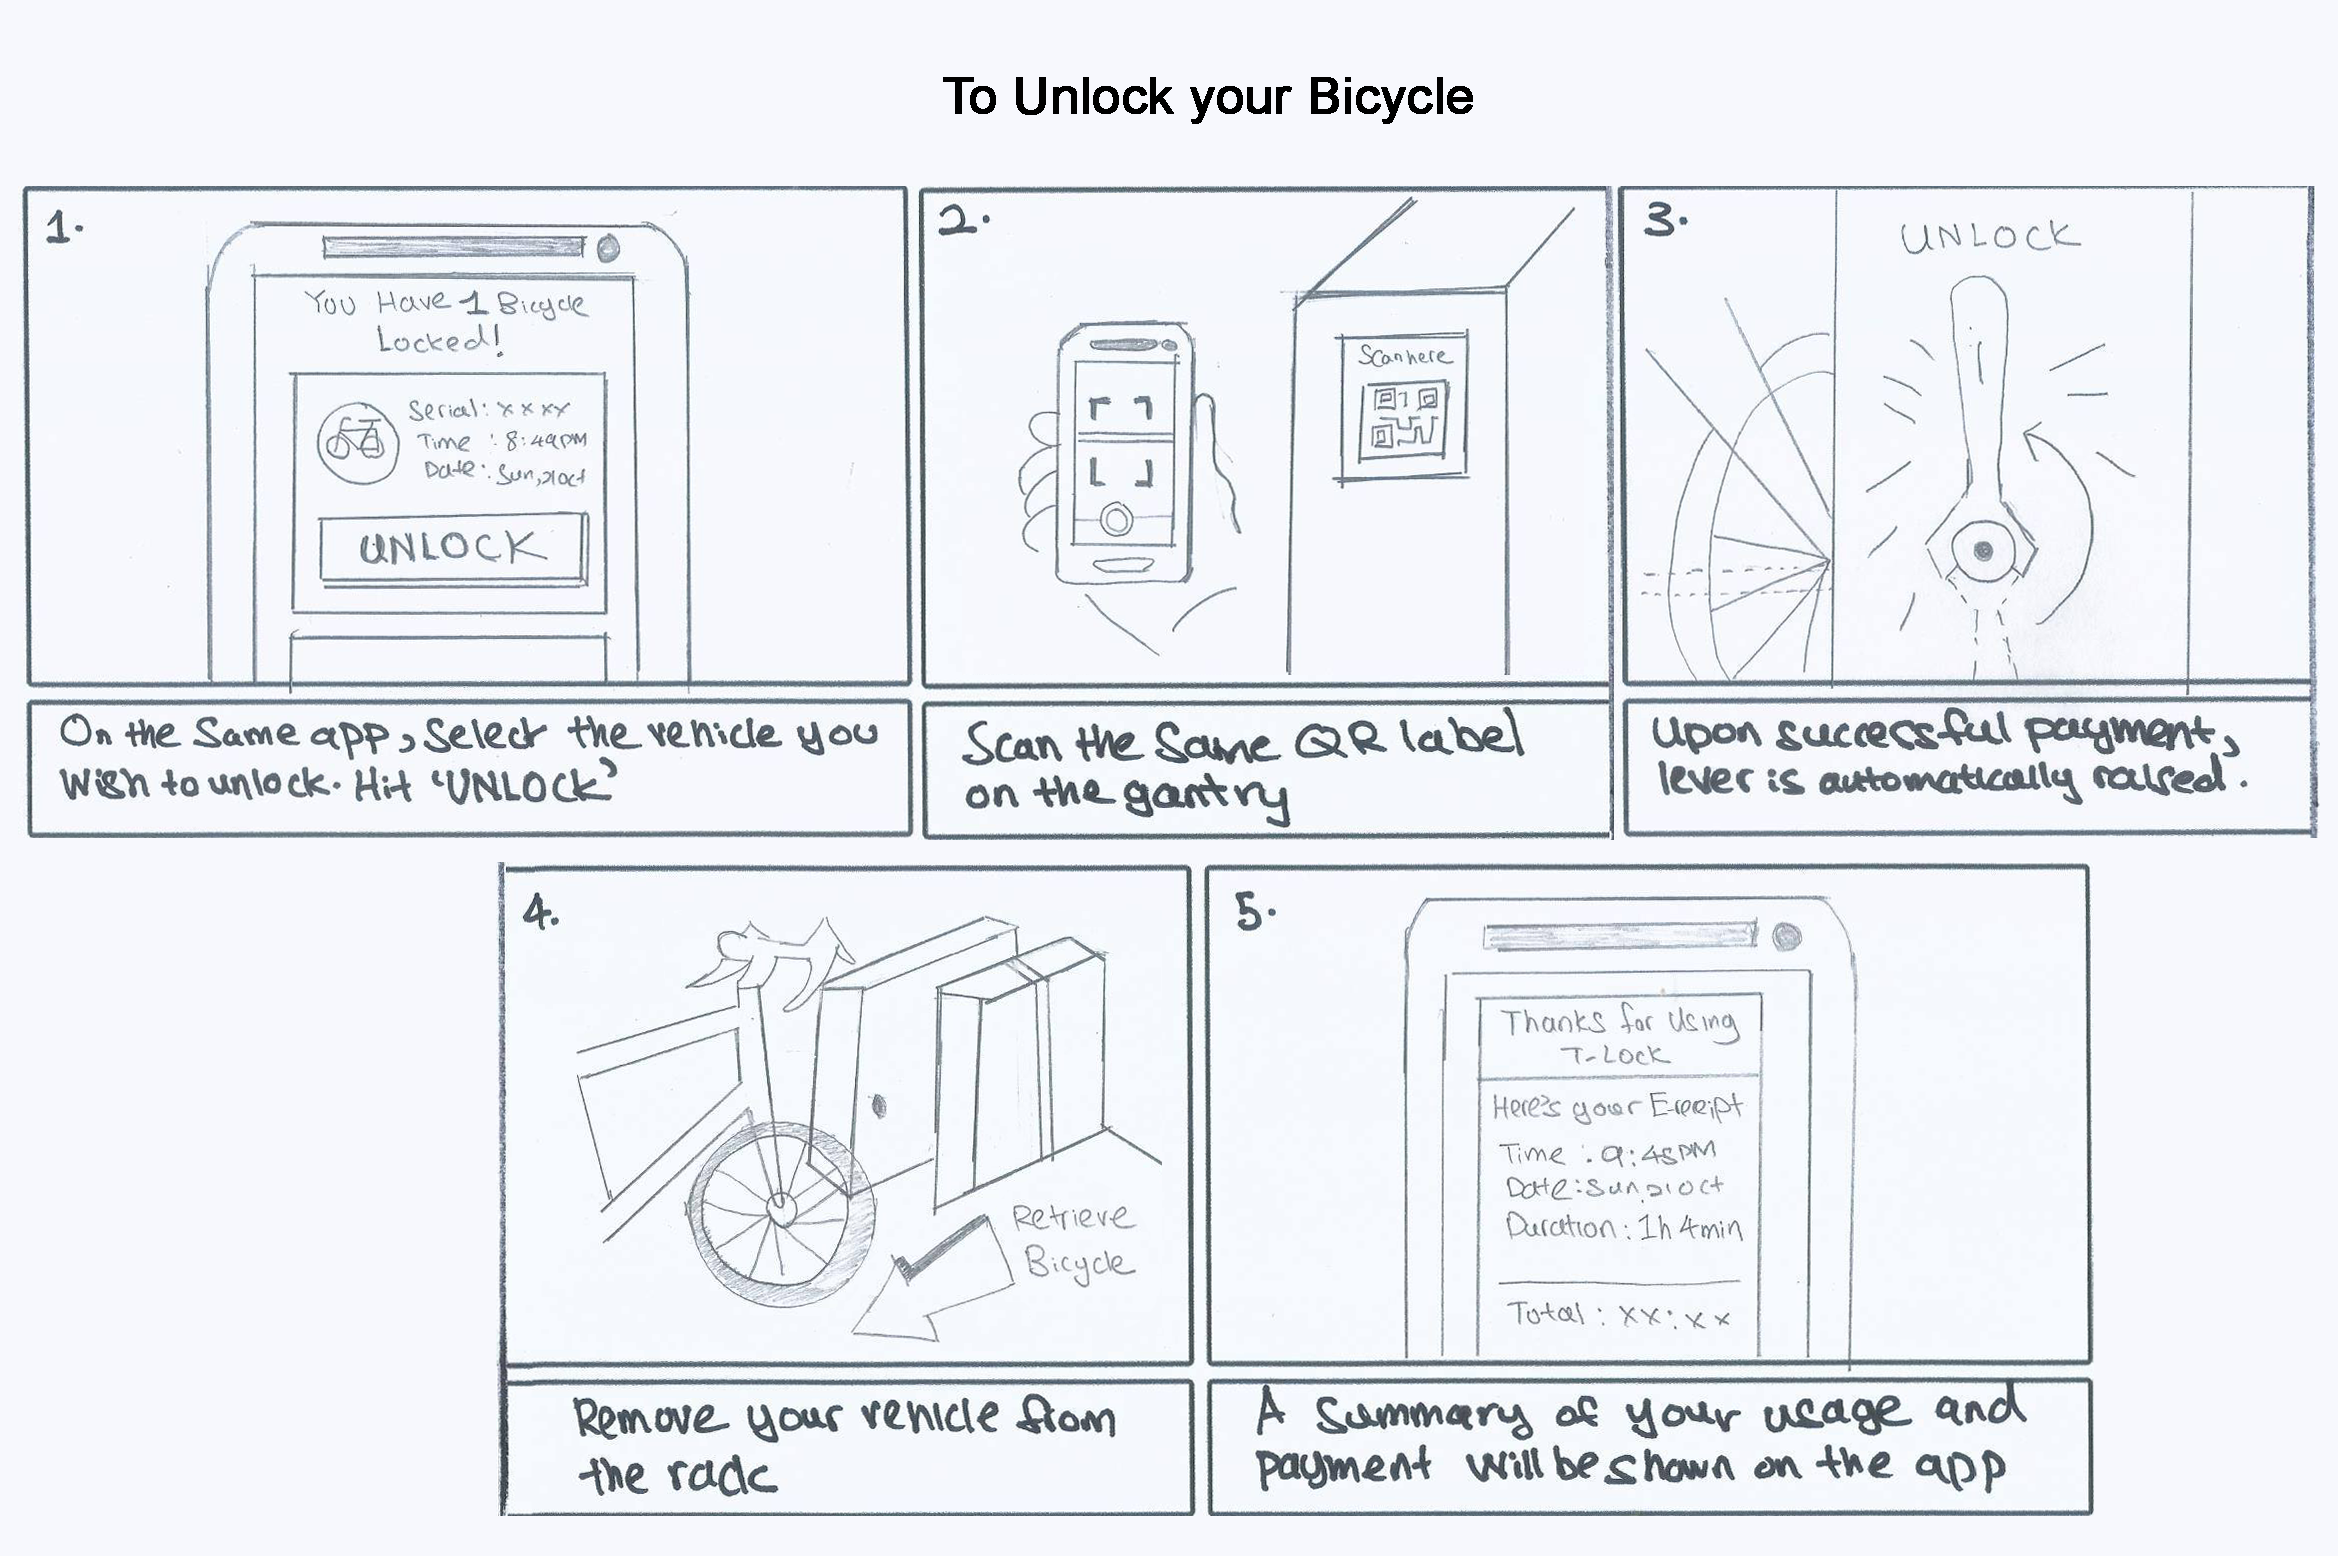 To Unlock your Bicycle
1.
You Have 1 Bicycle
Locked!
Serial: xxxx
Time : 8:49PM
Date: Sun, 21 Oct
UNLOCK
On the Same app, Select the vehicle you
wish to unlock. Hit 'UNLOCK'
2.
Scan here
Scan the Same QR label
on the gantry
3.
UNLOCK
Upon successful payment,
lever is automatically raised.
4.
Retrieve
Bicycle
Remove your vehicle from
the rack
5.
Thanks for Using
T-Lock
Here's your E-receipt
Time : 9:45PM
Date: Sun, 21 Oct
Duration: 1h 4min
Total : xx:xx
A summary of your usage and
payment will be shown on the app